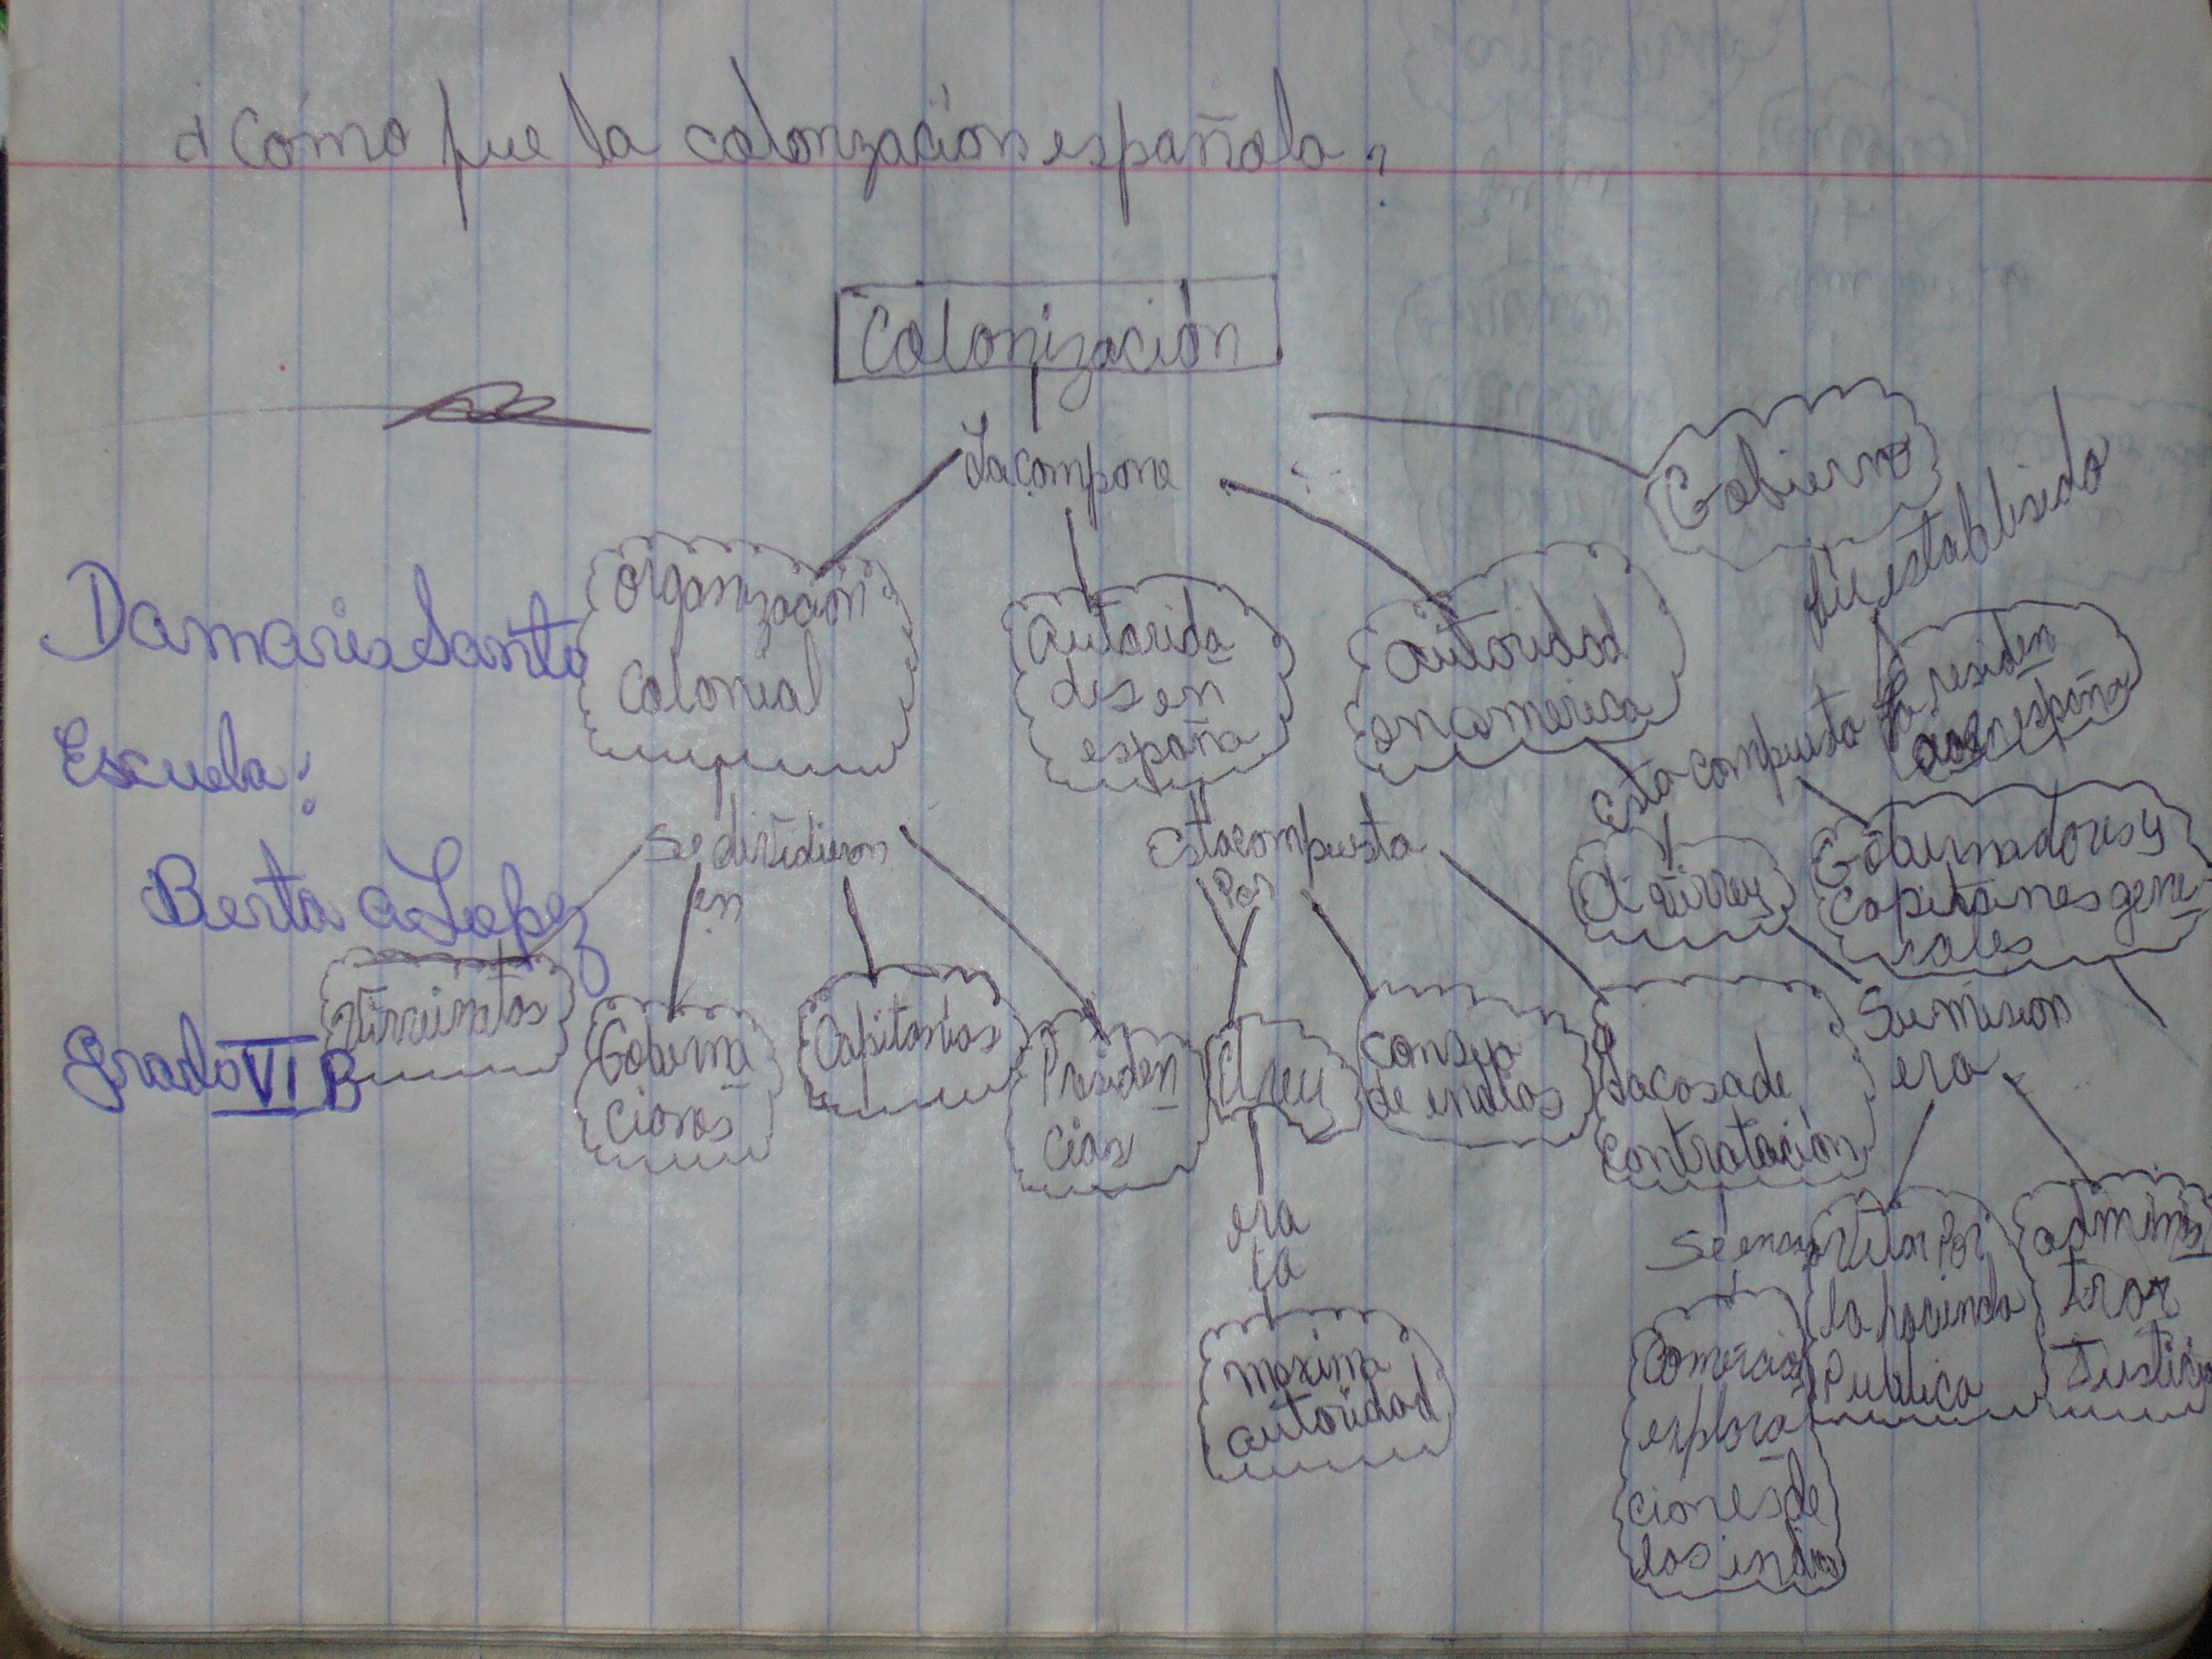 ¿Cómo fue la colonización española?
Colonización
La compone
Gobierno
fue establisido
Organización
Colonial
Autorida
des en
españa
autoridad
en america
La residen
españa
Damaris Santo
Escuela:
Berta A Lopez
Grado VI B
Se dividieron
en
Esta compuesta
Por
Esta compuesta
El virrey
Gobernadores y
Capitanes gene
rales
Virreinatos
Goberna
ciones
Capitanias
Presiden
cias
El rey
Consejo
de indias
La casa de
Contratación
Su mision
era
era
la
maxima
autoridad
Comercio
explora
ciones de
las indias
Velar Por
la hacienda
Publica
adminis
trar
Justicia